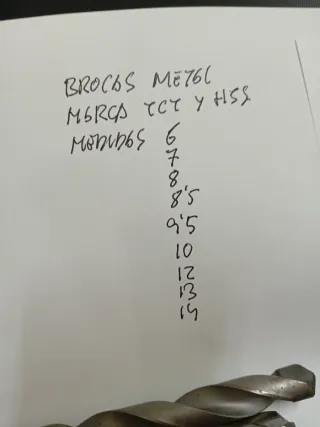 BROCAS METAL
MARCA TCT Y HSS
MEDIDAS 6
7
8
8'5
9'5
10
12
13
14